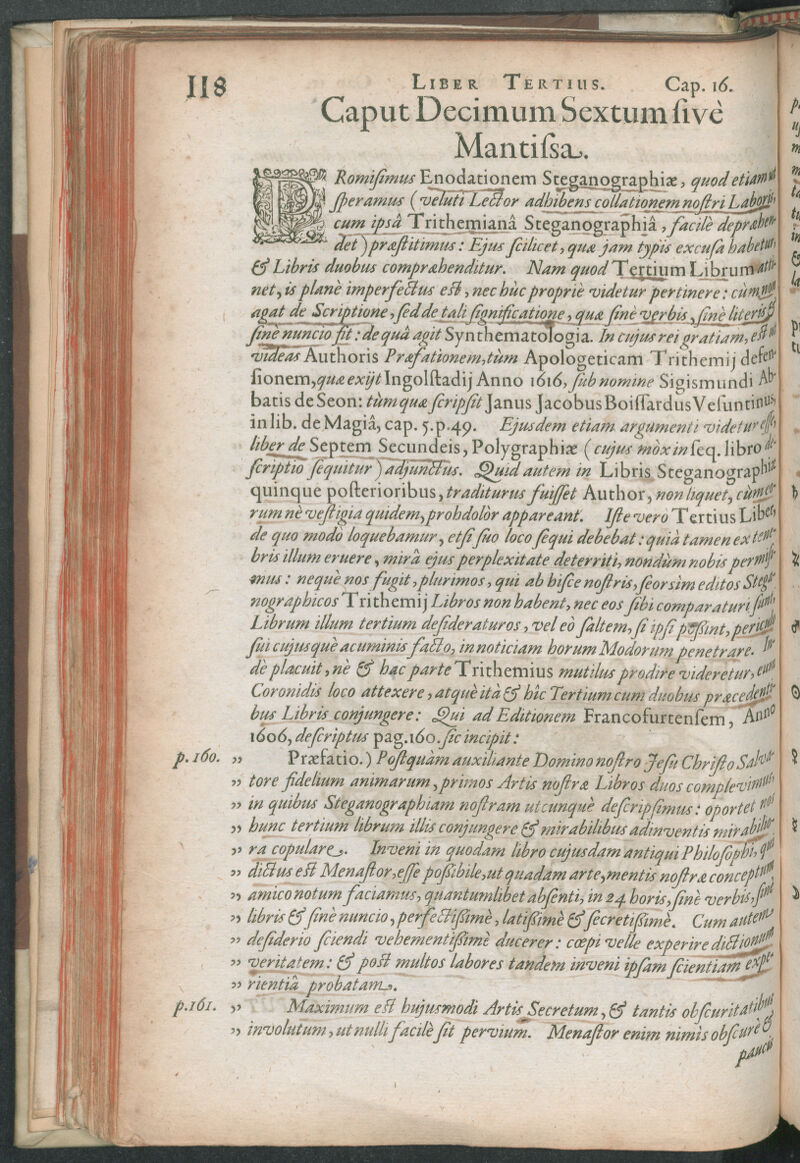 118 LIBER TERTIUS. Cap. 16.
Caput Decimum Sextum sivè
Mantissa.
PRomisimus Enodationem Steganographiæ, quod etiam ut
speramus (veluti Lector adhibens collationem nostri Laboris,
cum ipsâ Trithemianâ Steganographiâ, facilè depræhen-
det) præstitimus: Ejus scilicet, quæ jam typis excusa habetur,
& Libris duobus compræhenditur. Nam quod Tertium Librum atti-
net, is planè imperfectus est, nec hùc propriè videtur pertinere: cùm non
agat de Scriptione, sed de tali significatione, quæ sinè verbis, sinè literis &
sinè nuncio fit: de quâ agit Synthematologia. In cujus rei gratiam, est ut
videas Authoris Præfationem, tùm Apologeticam Trithemij defen-
sionem, quæ exijt Ingolstadij Anno 1616, sub nomine Sigismundi Ab-
batis de Seon: tùm quæ scripsit Janus Jacobus Boissardus Vesuntinus,
in lib. de Magiâ, cap. 5. p. 49. Ejusdem etiam argumenti videtur esse,
liber de Septem Secundeis, Polygraphiæ (cujus mòx in seq. libro de-
scriptio sequitur) adjunctus. Quid autem in Libris Steganographiæ
quinque posterioribus, traditurus fuisset Author, non liquet, cùm eo-
rum nè vestigia quidem, prohdolòr appareant. Iste vero Tertius Liber,
de quo modò loquebamur, etsi suo loco sequi debebat: quià tamen ex tene-
bris illum eruere, mirâ ejus perplexitate deterriti, nondùm nobis permisi-
mus: nequè nos fugit, plurimos, qui ab hisce nostris, seorsìm editos Stega-
nographicos Trithemij Libros non habent, nec eos sibi comparaturi sunt,
Librum illum tertium desideraturos, vel eò saltem, si ipsi possint, periculo
sui cujusquè acuminis facto, in noticiam horum Modorum penetrare. In-
dè placuit, nè & hac parte Trithemius mutilus prodire videretur, eum
Coronidis loco attexere, atquè ità & hîc Tertium cum duobus præcedenti-
bus Libris conjungere: Qui ad Editionem Francofurtensem, Anno
1606, descriptus pag. 160. sic incipit:
p. 160. „ Præfatio.) Postquàm auxiliante Domino nostro Jesu Christo Salva-
„ tore fidelium animarum, primos Artis nostræ Libros duos complevimus,
„ in quibus Steganographiam nostram utcunquè descripsimus: oportet nos
„ hunc tertium librum illis conjungere & mirabilibus adinventis mirabilio-
„ ra copulare. Inveni in quodam libro cujusdam antiqui Philosophi, qui
„ dictus est Menastor, esse possibile, ut quadam arte, mentis nostræ conceptum
„ amico notum faciamus, quantumlibet absenti, in 24 horis, sinè verbis, sinè
„ libris & sinè nuncio, perfectissimè, latissimè & secretissimè. Cum autem
„ desiderio sciendi vehementissimè ducerer: cœpi velle experiri dictionum
„ veritatem: & post multos labores tandem inveni ipsam scientiam expe-
„ rientiâ probatam.
p. 161. „ Maximum est hujusmodi Artis Secretum, & tantis obscuritatibus
„ involutum, ut nulli facilè sit pervium. Menastor enim nimis obscurè &
paucis